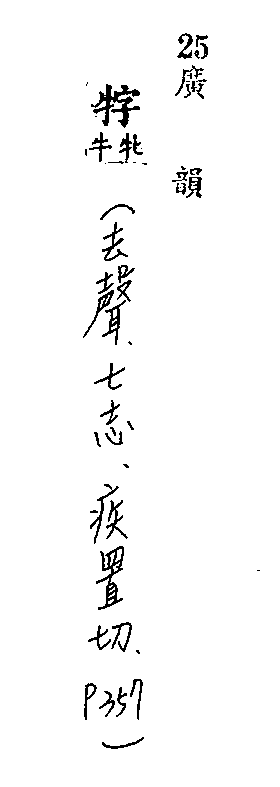 25廣韻
牸
牝牛
(去聲、七志、疾置切、P357)